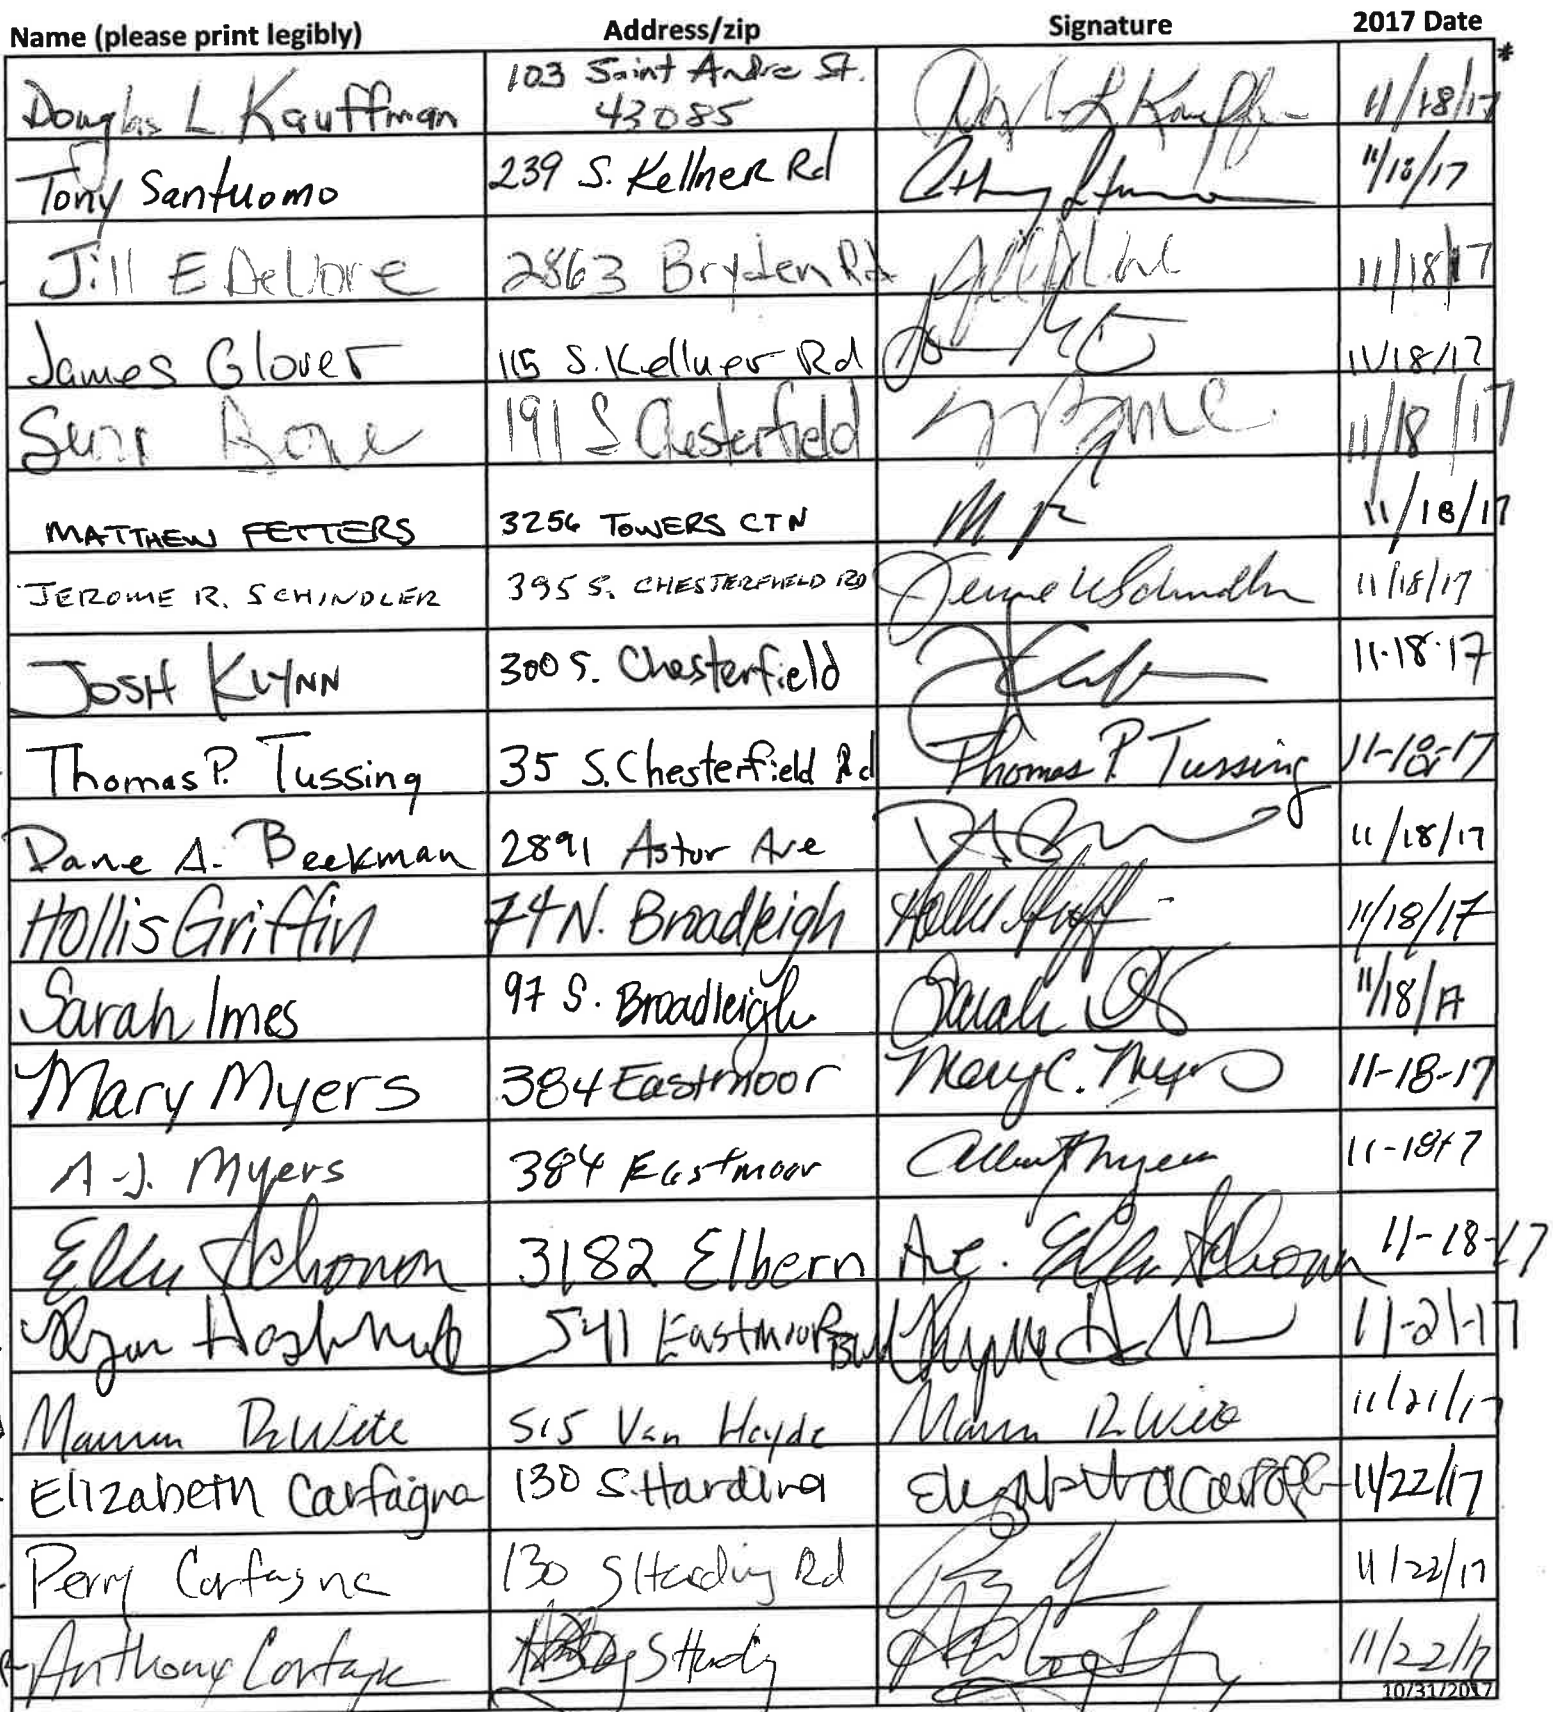 Name (please print legibly) Address/zip Signature 2017 Date
103 Saint Andre St.
Douglas L Kauffman 43085 11/18/17 *
Tony Santuomo 239 S. Kellner Rd 11/18/17
Jill E DeVore 2863 Bryden Rd 11/18/17
James Glover 115 S. Kellner Rd 11/18/17
191 S Chesterfield 11/18/17
MATTHEW FETTERS 3256 TOWERS CT N 11/18/17
JEROME R. SCHINDLER 395 S. CHESTERFIELD RD Jerome R Schindler 11/18/17
JOSH KLYNN 300 S. Chesterfield 11-18-17
Thomas P. Tussing 35 S. Chesterfield Rd Thomas P. Tussing 11-18-17
Dane A. Beekman 2891 Astor Ave 11/18/17
Hollis Griffin 74 N. Broadleigh Hollis Griff 11/18/17
Sarah Imes 97 S. Broadleigh Sarah 11/18/17
Mary Myers 384 Eastmoor Mary C. Myers 11-18-17
A.J. Myers 384 Eastmoor Albert Myers 11-18-17
3182 Elbern Ave. 11-18-17
Ryan 541 Eastmoor Blvd 11-21-17
DeWitt 515 Van Heyde 11/21/17
Elizabeth Carfagna 130 S. Harding 11/22/17
Perry Carfagna 130 S Harding Rd 11/22/17
Anthony Carfagna S Harding 11/22/17
10/31/2017